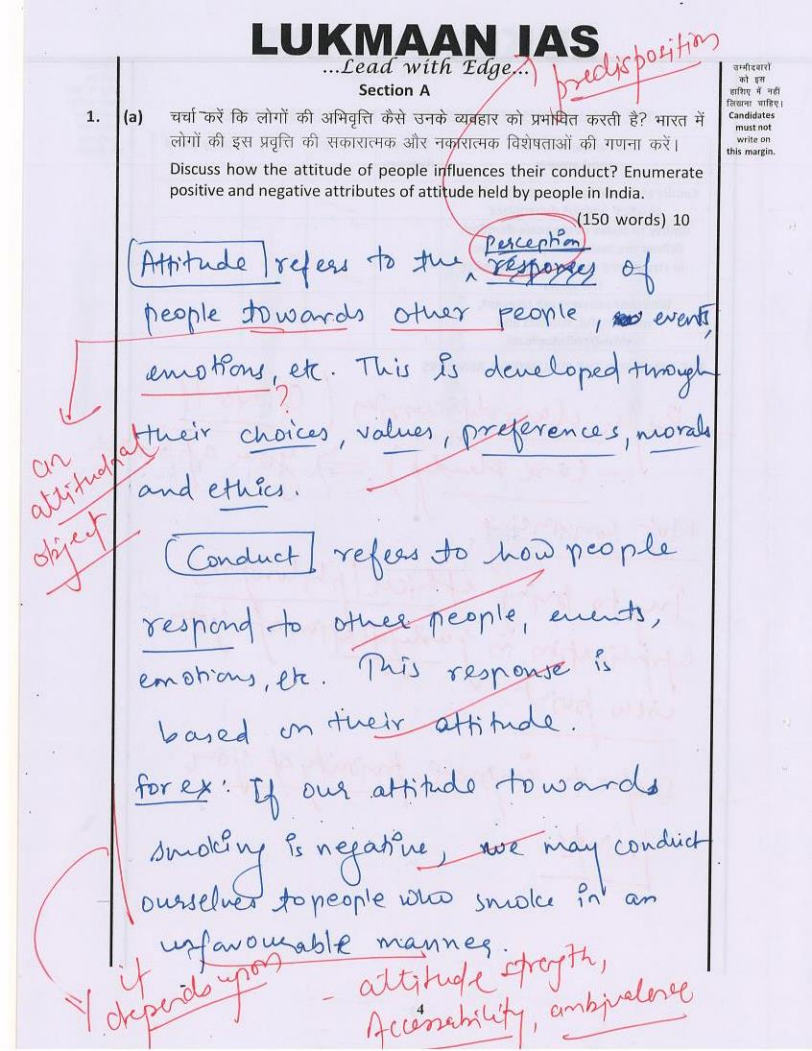 LUKMAAN IAS
...Lead with Edge...
predisposition
Section A
उम्मीदवारों
को इस
हाशिए में नहीं
लिखना चाहिए।
Candidates
must not
write on
this margin.
1. (a) चर्चा करें कि लोगों की अभिवृत्ति कैसे उनके व्यवहार को प्रभावित करती है? भारत में
लोगों की इस प्रवृत्ति की सकारात्मक और नकारात्मक विशेषताओं की गणना करें।
Discuss how the attitude of people influences their conduct? Enumerate
positive and negative attributes of attitude held by people in India.
(150 words) 10
perception
Attitude refers to the ^ responses of
people towards other people, events,
emotions, etc. This is developed through
?
their choices, values, preferences, morals
and ethics.
an
attitudnal
object
Conduct refers to how people
respond to other people, events,
emotions, etc. This response is
based on their attitude.
for ex: If our attitude towards
smoking is negative, we may conduct
ourselves to people who smoke in an
unfavourable manner.
it
depends upon
- attitude strength,
Accessability, ambivalence
4